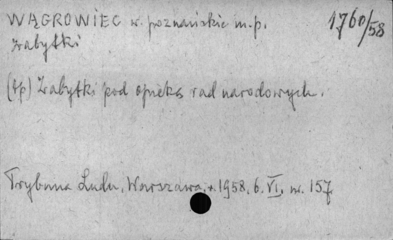 WĄGROWIEC w. poznańskie m.p. 1760/58
Zabytki
(tp) Zabytki pod opieką rad narodowych.
Trybuna Ludu, Warszawa, r. 1958. 6. VI, nr. 157